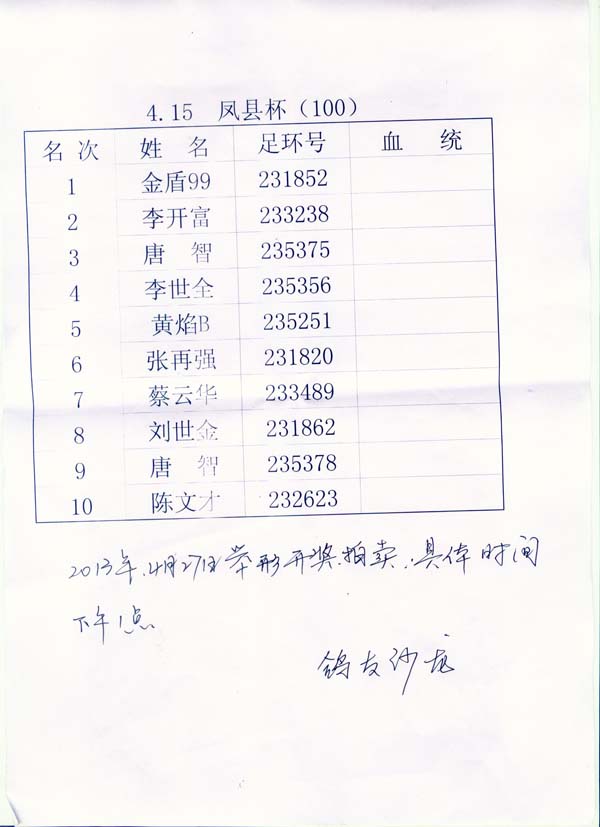 4.15 凤县杯（100）
名 次 姓 名 足环号 血 统
1 金盾99 231852
2 李开富 233238
3 唐 智 235375
4 李世全 235356
5 黄焰B 235251
6 张再强 231820
7 蔡云华 233489
8 刘世金 231862
9 唐 智 235378
10 陈文才 232623
2013年.4月27日举行开奖.拍卖.具体时间
下午1点.
鸽友沙龙